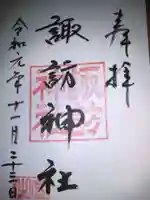 奉拝
諏訪神社
令和元年十一月二十三日